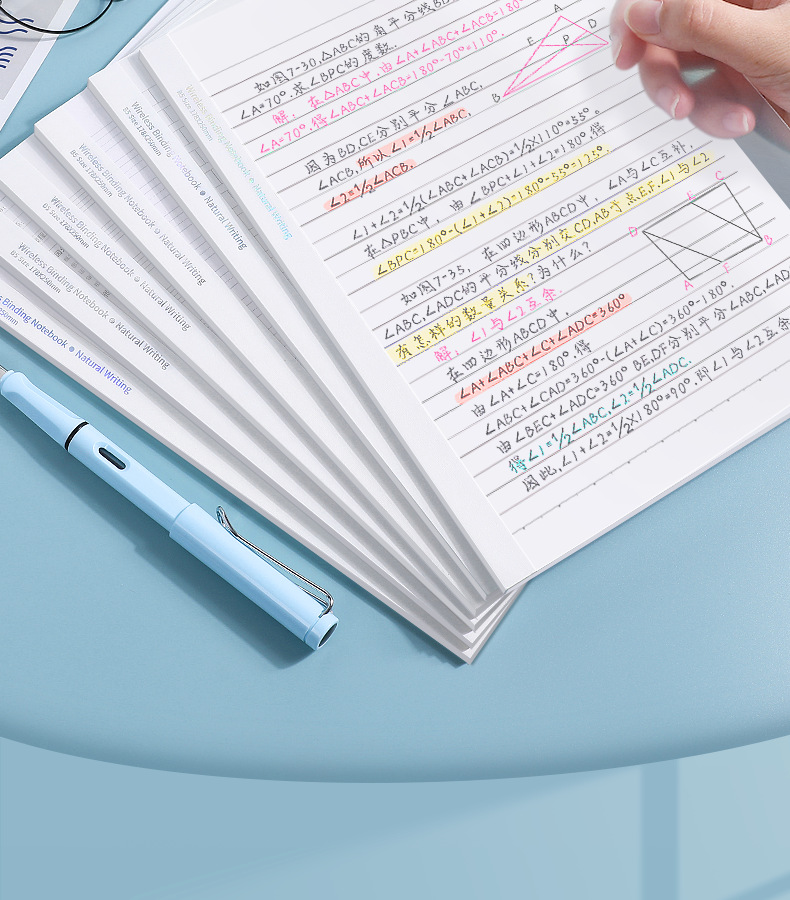 如图7-30,△ABC的角平分线BD
∠A=70°.求∠BPC的度数.
解: 在△ABC中,由∠A+∠ABC+∠ACB=180°
∠A=70°.得∠ABC+∠ACB=180°-70°=110°.
因为BD,CE分别平分∠ABC,
∠ACB,所以∠1=1/2∠ABC,
∠2=1/2∠ACB.
∠1+∠2=1/2(∠ABC+∠ACB)=1/2X110°=55°.
在△PBC中, 由∠BPC+∠1+∠2=180°.得
∠BPC=180°-(∠1+∠2)=180°-55°=125°.
如图7-35, 在四边形ABCD中, ∠A与∠C互补,
∠ABC,∠ADC的平分线分别交CD,AB于点E,F,∠1与∠2
有怎样的数量关系?为什么?
解: ∠1与∠2互余.
在四边形ABCD中,
∠A+∠ABC+∠C+∠ADC=360°
由∠A+∠C=180°.得
∠ABC+∠CAD=360°-(∠A+∠C)=360°-180°.
由∠BEC+∠ADC=360° BE,DF分别平分∠ABC,∠AD
得∠1=1/2∠ABC,∠2=1/2∠ADC.
因此,∠1+∠2=1/2X180°=90°.即∠1与∠2互余
A
E
P
D
B
D
E
C
B
F
A
Wireless Binding Notebook ● Natural Writing
B5 Size 178X250mm
Wireless Binding Notebook ● Natural Writing
B5 Size 178X250mm
Wireless Binding Notebook ● Natural Writing
B5 Size 178X250mm
Wireless Binding Notebook ● Natural Writing
B5 Size 178X250mm
Wireless Binding Notebook ● Natural Writing
B5 Size 178X250mm
Binding Notebook ● Natural Writing